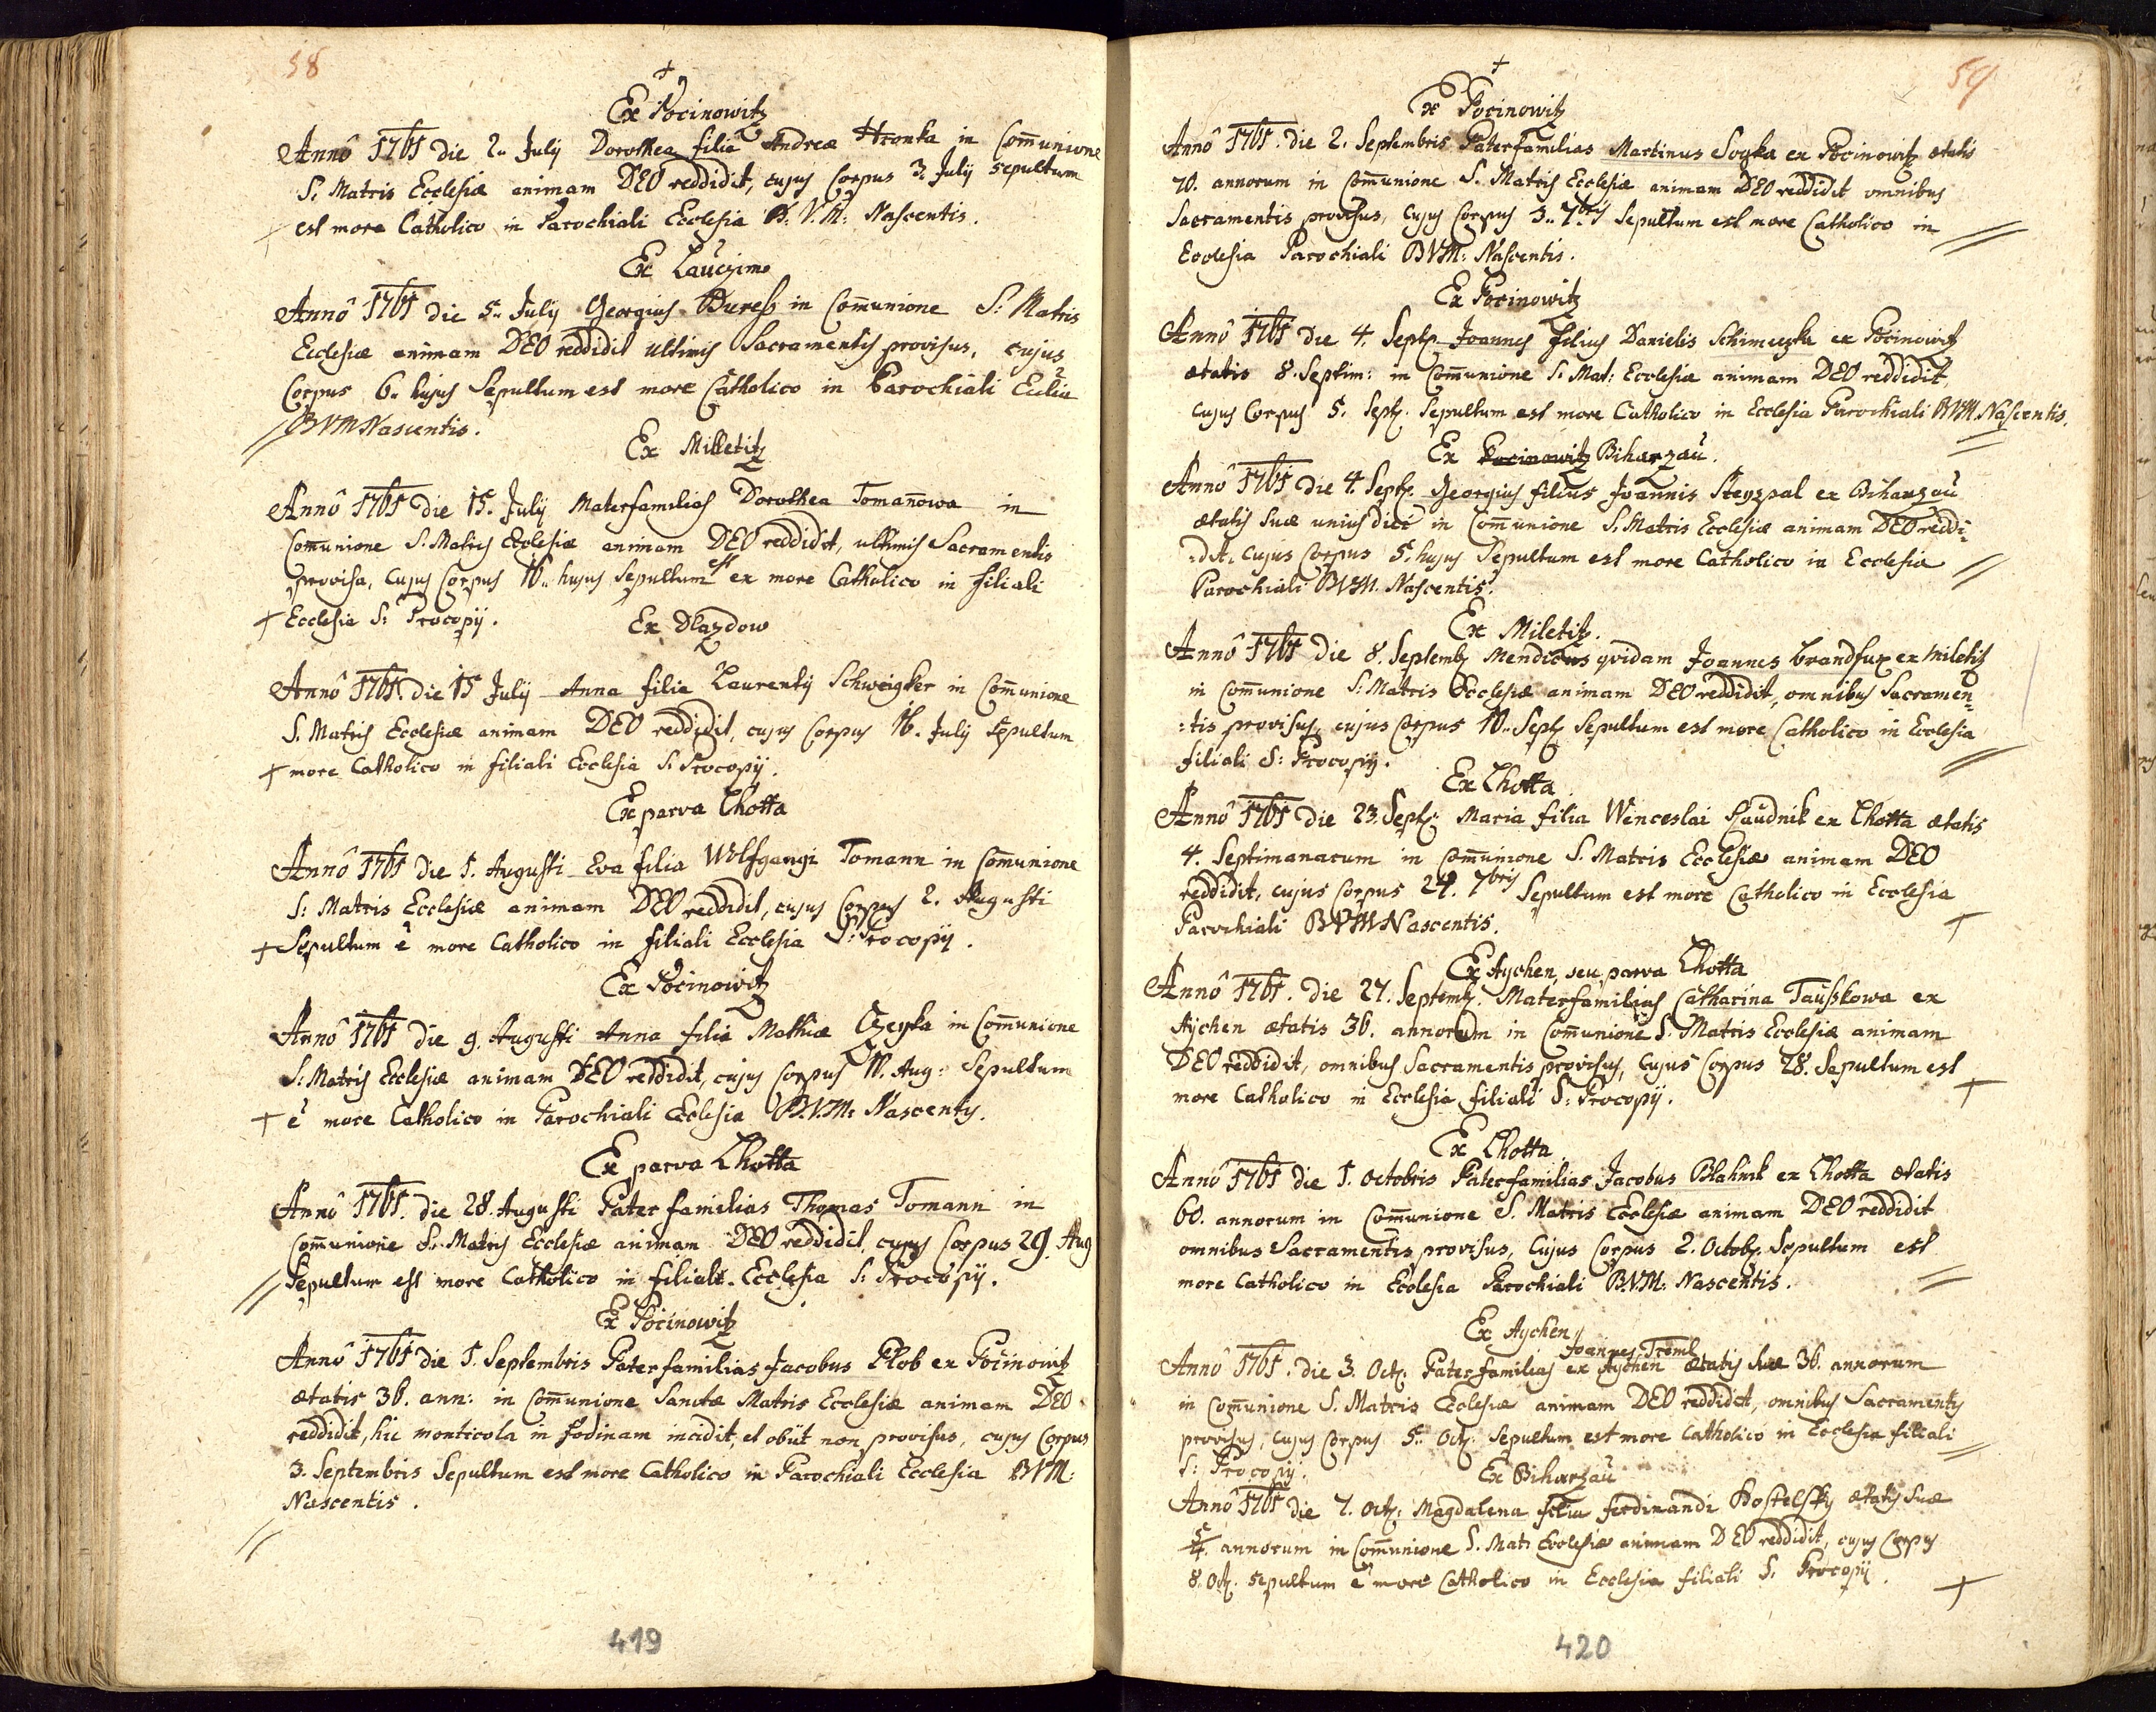 58
+
Ex Pocinowitz
Annô 1761 die 2.. July Dorothea filia Andreæ Hronka in Com̄unione
S. Matris Ecclesiæ animam DEO reddidit, cujus Corpus 3. July sepultum
est more Catholico in Parochiali Ecclesia B: V. M: Nascentis.
Ex Lauczimo
Annô 1761 die 5.. July Georgius Buress in Com̄unione S: Matris
Ecclesiæ animam DEO reddidit ultimis Sacramentis provisus, cujus
Corpus 6.. hujus Sepultum est more Catholico in Parochiali Ecclia
BVM Nascentis.
Ex Milletitz
Annô 1761 die 15. July Materfamilias Dorothea Toman̄owa in
Com̄unione S. Matris Ecclesiæ animam DEO reddidit, ultimis Sacramentis
provisa, cujus Corpus 16.. hujus Sepultum est ex more Catholico in filiali
+ Ecclesia S: Procopij.
Ex Dlazdow
Annô 1761. die 15 July Anna filia Laurentij Schweigker in Com̄unione
S. Matris Ecclesiæ animam DEO reddidit, cujus Corpus 16. July sepultum
+ more Catholico in filiali Ecclesia S. Procopij.
Ex parva Lhotta
Annô 1761 die 1. Augusti Eva filia Wolfgangi Tomann in Com̄unione
S: Matris Ecclesiæ animam DEO reddidit, cujus Corpus 2. Augusti
+ Sepultum ê more Catholico in filiali Ecclesia S: Procopij.
Ex Pocinowitz
Annô 1761 die 9. Augusti Anna filia Mathiæ Czeyka in Com̄unione
S: Matris Ecclesiæ animam DEO reddidit, cujus Corpus 11. Aug: Sepultum
+ ê more Catholico in Parochiali Ecclesia B.V.M: Nascentis.
Ex parva Lhotta
Annô 1761. die 28. Augusti Pater familias Thomas Tomann in
Com̄unione S. Matris Ecclesiæ animam DEO reddidit, cujus Corpus 29. Aug
Sepultum est more Catholico in filiali Ecclesia S: Procopij.
Ex Pocinowitz
Annô 1761 die 1. Septembris Paterfamilias Jacobus Plob ex Pocinowitz
ætatis 36. ann: in Com̄unione Sanctæ Matris Ecclesiæ animam DEO
reddidit, hic monticola in fodinam incidit, et obijt non provisus, cujus Corpus
3. Septembris Sepultum est more Catholico in Parochiali Ecclesia BVM:
Nascentis.
419
59
+
Ex Pocinowitz
Annô 1761. die 2. Septembris Paterfamilias Martinus Soyka ex Pocinowitz ætatis
70. annorum in Com̄unione S. Matris Ecclesiæ animam DEO reddidit omnibus
Sacramentis provisus, cujus Corpus 3.. 7bris Sepultum est more Catholico in
Ecclesia Parochiali BVM: Nascentis.
Ex Pocinowitz
Annô 1761 die 4. Sept. Joannes filius Danielis Schimeczka ex Pocinowitz
ætatis 8. Septim: in Com̄unione S. Mat: Ecclesiæ animam DEO reddidit,
cujus Corpus 5. Sept. Sepultum est more Catholico in Ecclesia Parochiali BVM. Nascentis.
Ex Pocinowitz Biharzau.
Annô 1761 die 4. Sept. Georgius filius Joannis Steyspal ex Biharzau
ætatis suæ unius diei in Com̄unione S. Matris Ecclesiæ animam DEO reddi-
:dit, cujus Corpus 5. hujus Sepultum est more Catholico in Ecclesia
Parochiali BVM. Nascentis.
Ex Miletitz.
Annô 1761 die 8. Septemb. Mendicus quidam Joannes Brandfux ex Miletitz
in Com̄unione S: Matris Ecclesiæ animam DEO reddidit, omnibus Sacramen-
:tis provisus, cujus Corpus 10.. Sept. Sepultum est more Catholico in Ecclesia
filiali S: Procopij.
Ex Lhotta
Annô 1761 die 23. Sept. Maria filia Wenceslai Raudnik ex Lhotta ætatis
4. Septimanarum in Com̄unione S. Matris Ecclesiæ animam DEO
reddidit, cujus Corpus 24. 7bris Sepultum est more Catholico in Ecclesia
Parochiali BVM Nascentis. +
Ex Aychen, seu parva Lhotta
Annô 1761. die 27. Septemb. Materfamilias Catharina Tausskowa ex
Aychen ætatis 36. annorum in Com̄unione S. Matris Ecclesiæ animam
DEO reddidit, omnibus Sacramentis provisus, cujus Corpus 28. Sepultum est
more Catholico in Ecclesia filiali S: Procopij. +
Ex Lhotta
Annô 1761 die 1. Octobris Paterfamilias Jacobus Blahnik ex Lhotta ætatis
60. annorum in Com̄unione S. Matris Ecclesiæ animam DEO reddidit
omnibus Sacramentis provisus, cujus Corpus 2. Octob. Sepultum est
more Catholico in Ecclesia Parochiali B.V.M: Nascentis.
Ex Aychen
Joannes Treml
Annô 1761. die 3. Oct. Paterfamilias ex Aychen ætatis suæ 36. annorum
in Com̄unione S. Matris Ecclesiæ animam DEO reddidit, omnibus Sacramentis
provisus, cujus Corpus 5.. Oct. Sepultum est more Catholico in Ecclesia filiali
S: Procopij.
Ex Biharzau
Annô 1761 die 7. Oct. Magdalena filia Ferdinandi Kostelsky ætatis suæ
5/4. annorum in Com̄unione S. Mat: Ecclesiæ animam DEO reddidit, cujus Corpus
8. Oct. sepultum ê more Catholico in Ecclesia filiali S. Procopij. +
420